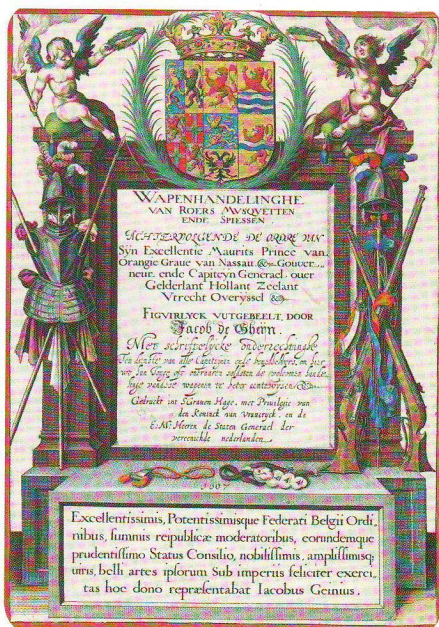 WAPENHANDELINGHE
VAN ROERS MVSQVETTEN
ENDE SPIESSEN.
ACHTERVOLGENDE DE ORDRE VAN
Syn Excellentie Maurits Prince van
Orangie Graue van Nassau &c. Gouver_
neur. ende Capiteyn Generael ouer
Gelderlant Hollant Zeelant
Vtrecht Overyssel &c.
FIGVIRLYCK VUTGEBEELT, DOOR
Jacob de Gheijn.
Met schriftelijcke onderrechtinghe
Ten dienste van alle Capiteinen ende
Gedruckt int sGraven Hage. Met Privilegie van
den Koninck van Vrancryck, en de
E: M: Heeren de Staten Generael der
vereenichde nederlanden
1607
Excellentissimis, Potentissimisque Federati Belgii Ordi_
nibus, summis reipublicæ moderatoribus, eorundemque
prudentissimo Status Consilio, nobilissimis, amplissimisq
uiris, belli artes ipsorum Sub imperiis feliciter exerci_
tas hoc dono repræsentabat Iacobus Geinius.